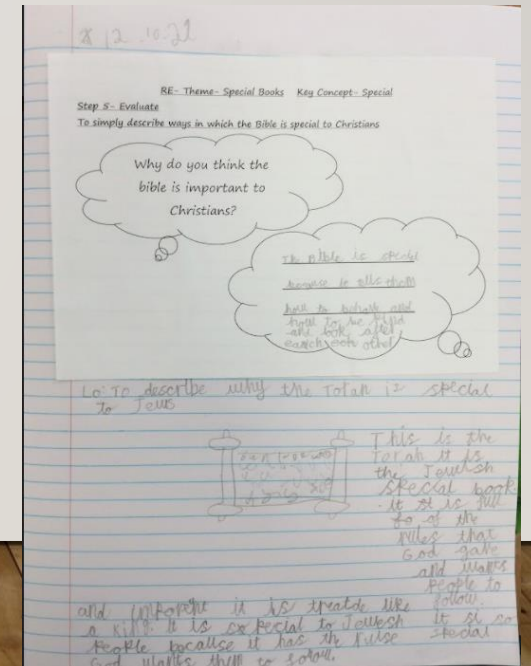 12.10.21
RE- Theme- Special Books Key Concept- Special
Step 5- Evaluate
To simply describe ways in which the Bible is special to Christians
Why do you think the
bible is important to
Christians?
The Bible is special
because it tells them
how to behave and
how to be kind
and look after
earch each other
Lo: To describe why the Torah is special
to Jews
This is the
Torah it is
the Jewesh
special book
it is full
fo of the
rules that
God gave
and wants
people to
follow.
and importent it is treatde like
a King. It is special to Jewesh
People because it has the rulse
God wants them to follow.
it is so
special